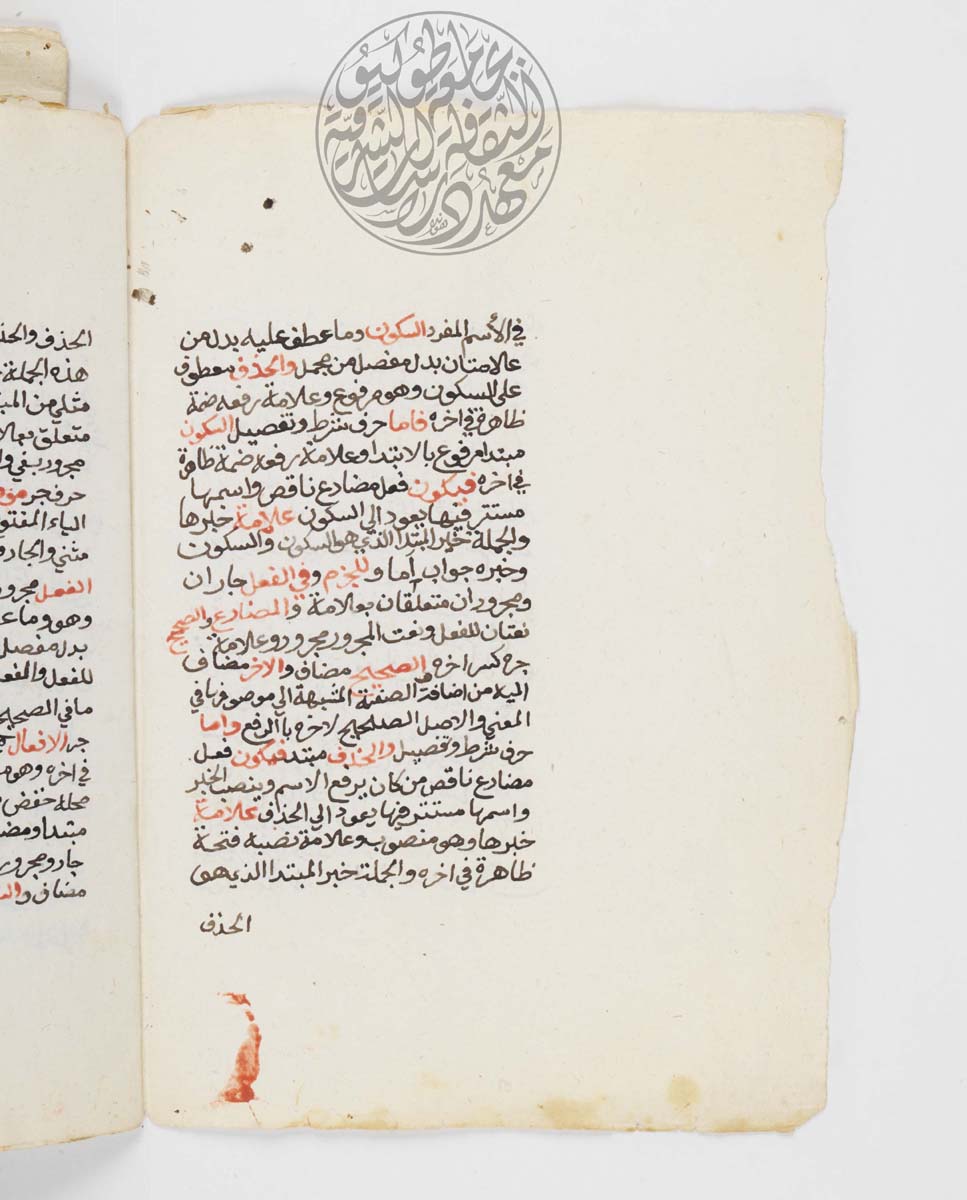 في الأسم المفرد السكون وما عطف عليه بدل من
علامتان بدل مفصل من مجمل والحذف معطوف
على السكون وهو مرفوع وعلامة رفعه ضمة
ظاهرة في اخره فاما حرف شرط وتفصيل السكون
مبتدا مرفوع بالابتدا وعلامة رفعه ضمة ظاهرة
في اخره فيكون فعل مضارع ناقص واسمها
مستتر فيها يعود الي السكون علامة خبرها
والجملة خبر المبتدا الذي هو السكون والسكون
وخبره جواب أما وللجزم وفي الفعل جاران
ومجروران متعلقان بعلامة والمضارع والصحيح
نعتان للفعل ونعت المجرور مجرور وعلامة
جره كسر اخره الصحيح مضاف والاخر مضاف
اليه من اضافة الصفة المشبهة الي موصوفها في
المعني والاصل الصحيح لاخره باالرفع واما
حرف شرط وتفصيل والحذف مبتد فيكون فعل
مضارع ناقص من كان يرفع الاسم وينصب الخبر
واسمها مستتر فيها يعود الي الحذف علامة
خبرها وهو منصوب وعلامة نصبه فتحة
ظاهرة في اخره والجملة خبر المبتدا الذي هو
الحذف
الحذف والحذ
هذه الجملة
مثلي من المب
متعلق بعلا
مجرور بفي وا
حرف جر
الياء المفتو
مثني والجار و
الفعل مجرو
وهو وما ع
بدل مفصل
للفعل والفعل
ما في الصحيح
جر الافعال
في اخره وهو م
محله خفض
مبتدا ومضا
جار ومجرور
مضاف